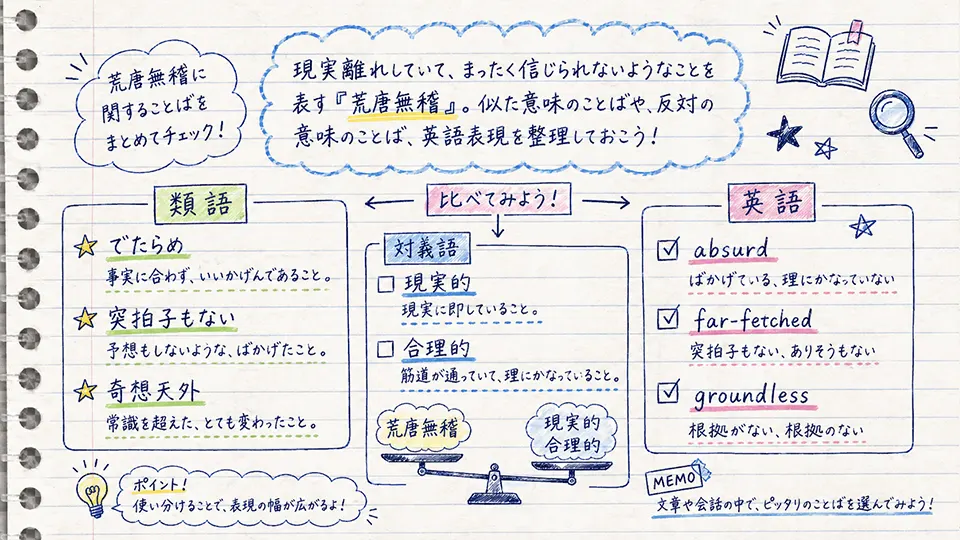 荒唐無稽に
関することばを
まとめてチェック！
現実離れしていて、まったく信じられないようなことを
表す『荒唐無稽』。似た意味のことばや、反対の
意味のことば、英語表現を整理しておこう！
類語
でたらめ
事実に合わず、いいかげんであること。
突拍子もない
予想もしないような、ばかげたこと。
奇想天外
常識を超えた、とても変わったこと。
比べてみよう！
対義語
現実的
現実に即していること。
合理的
筋道が通っていて、理にかなっていること。
荒唐無稽
現実的
合理的
英語
absurd
ばかげている、理にかなっていない
far-fetched
突拍子もない、ありそうもない
groundless
根拠がない、根拠のない
ポイント！
使い分けることで、表現の幅が広がるよ！
MEMO
文章や会話の中で、ピッタリのことばを選んでみよう！